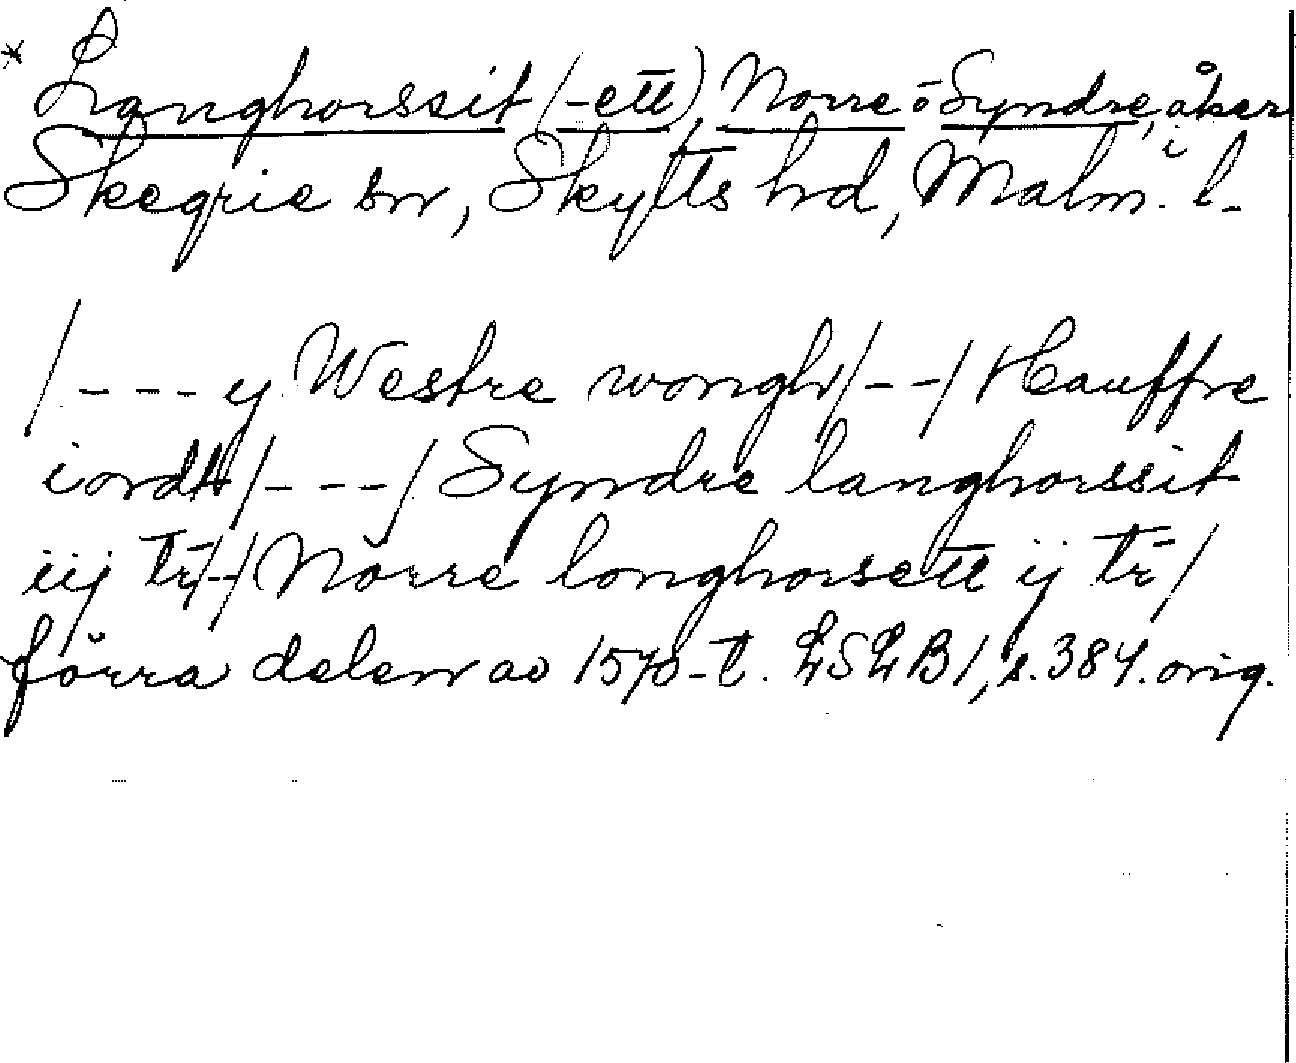 * Langhorssit (-ett), Norre o Syndre, åker i
Skegrie sn, Skytts hd, Malm. l.
/--- y Westre wongh/--/ Hauffre
iordh/---/ Syndre langhorssit
iij tr̄/--/ Nörre longhorsett ij tr̄/
förra delen av 1570-t. LSLB1, s. 384. orig.